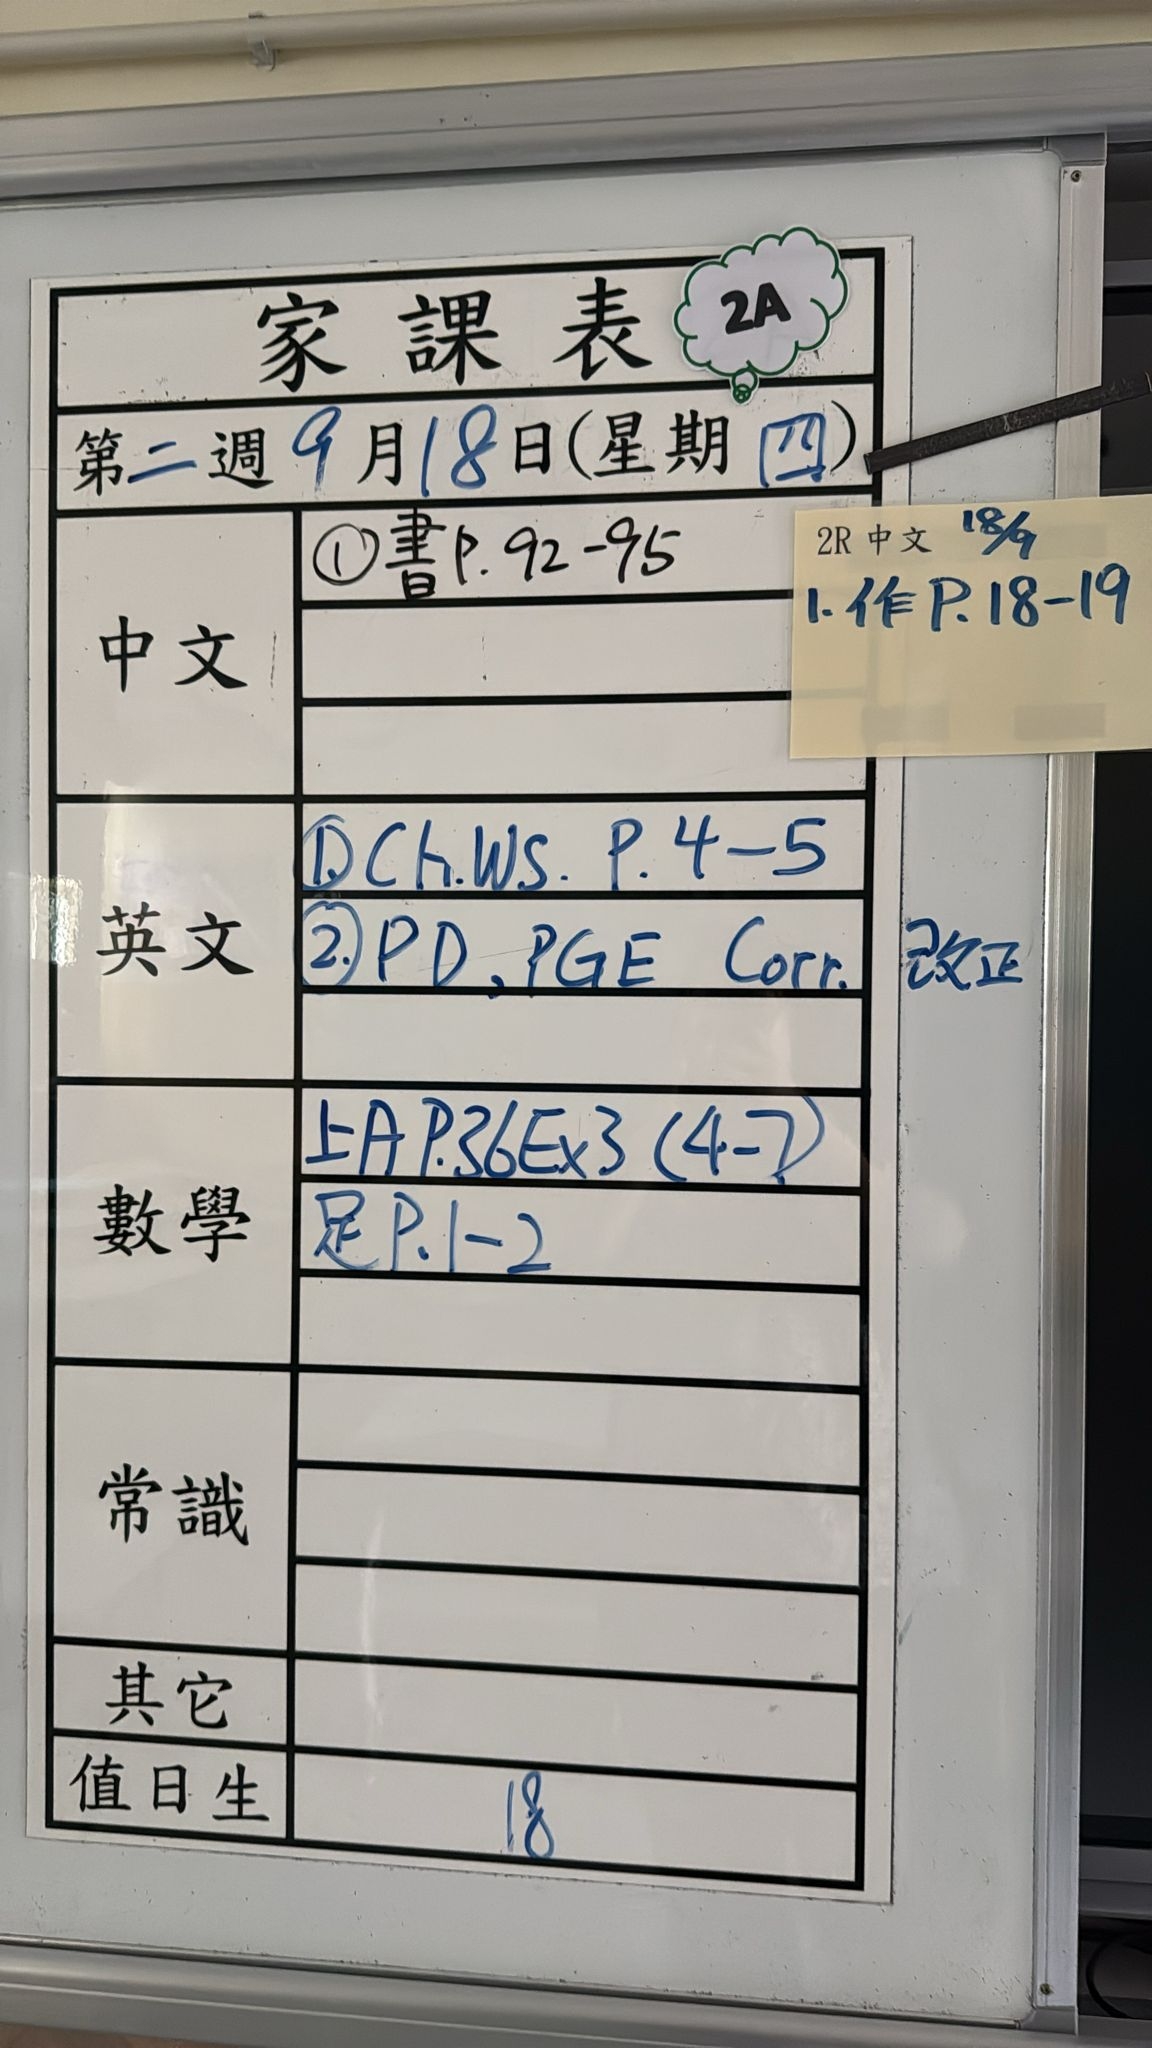 家課表
2A
第二週 9月18日(星期四)
中文
①書P.92-95
2R 中文 18/9
1. 作 P.18-19
英文
①Ch.WS. P.4-5
②PD, PGE Corr. 改正
數學
上A P.36Ex3 (4-7)
足P.1-2
常識
其它
值日生
18